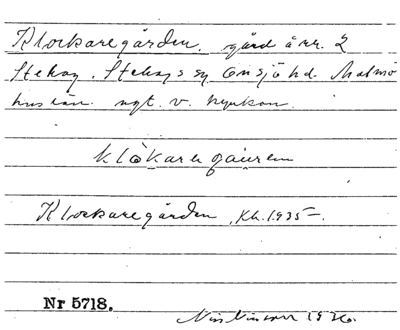 Klockaregården. gård å nr. 2
Stehag. Stehags sn Onsjö hd. Malmö
hus län. ngt. v. kyrkan.
klåkaregåuren
Klockaregården, Kh. 1935-.
Nr 5718.
1926.